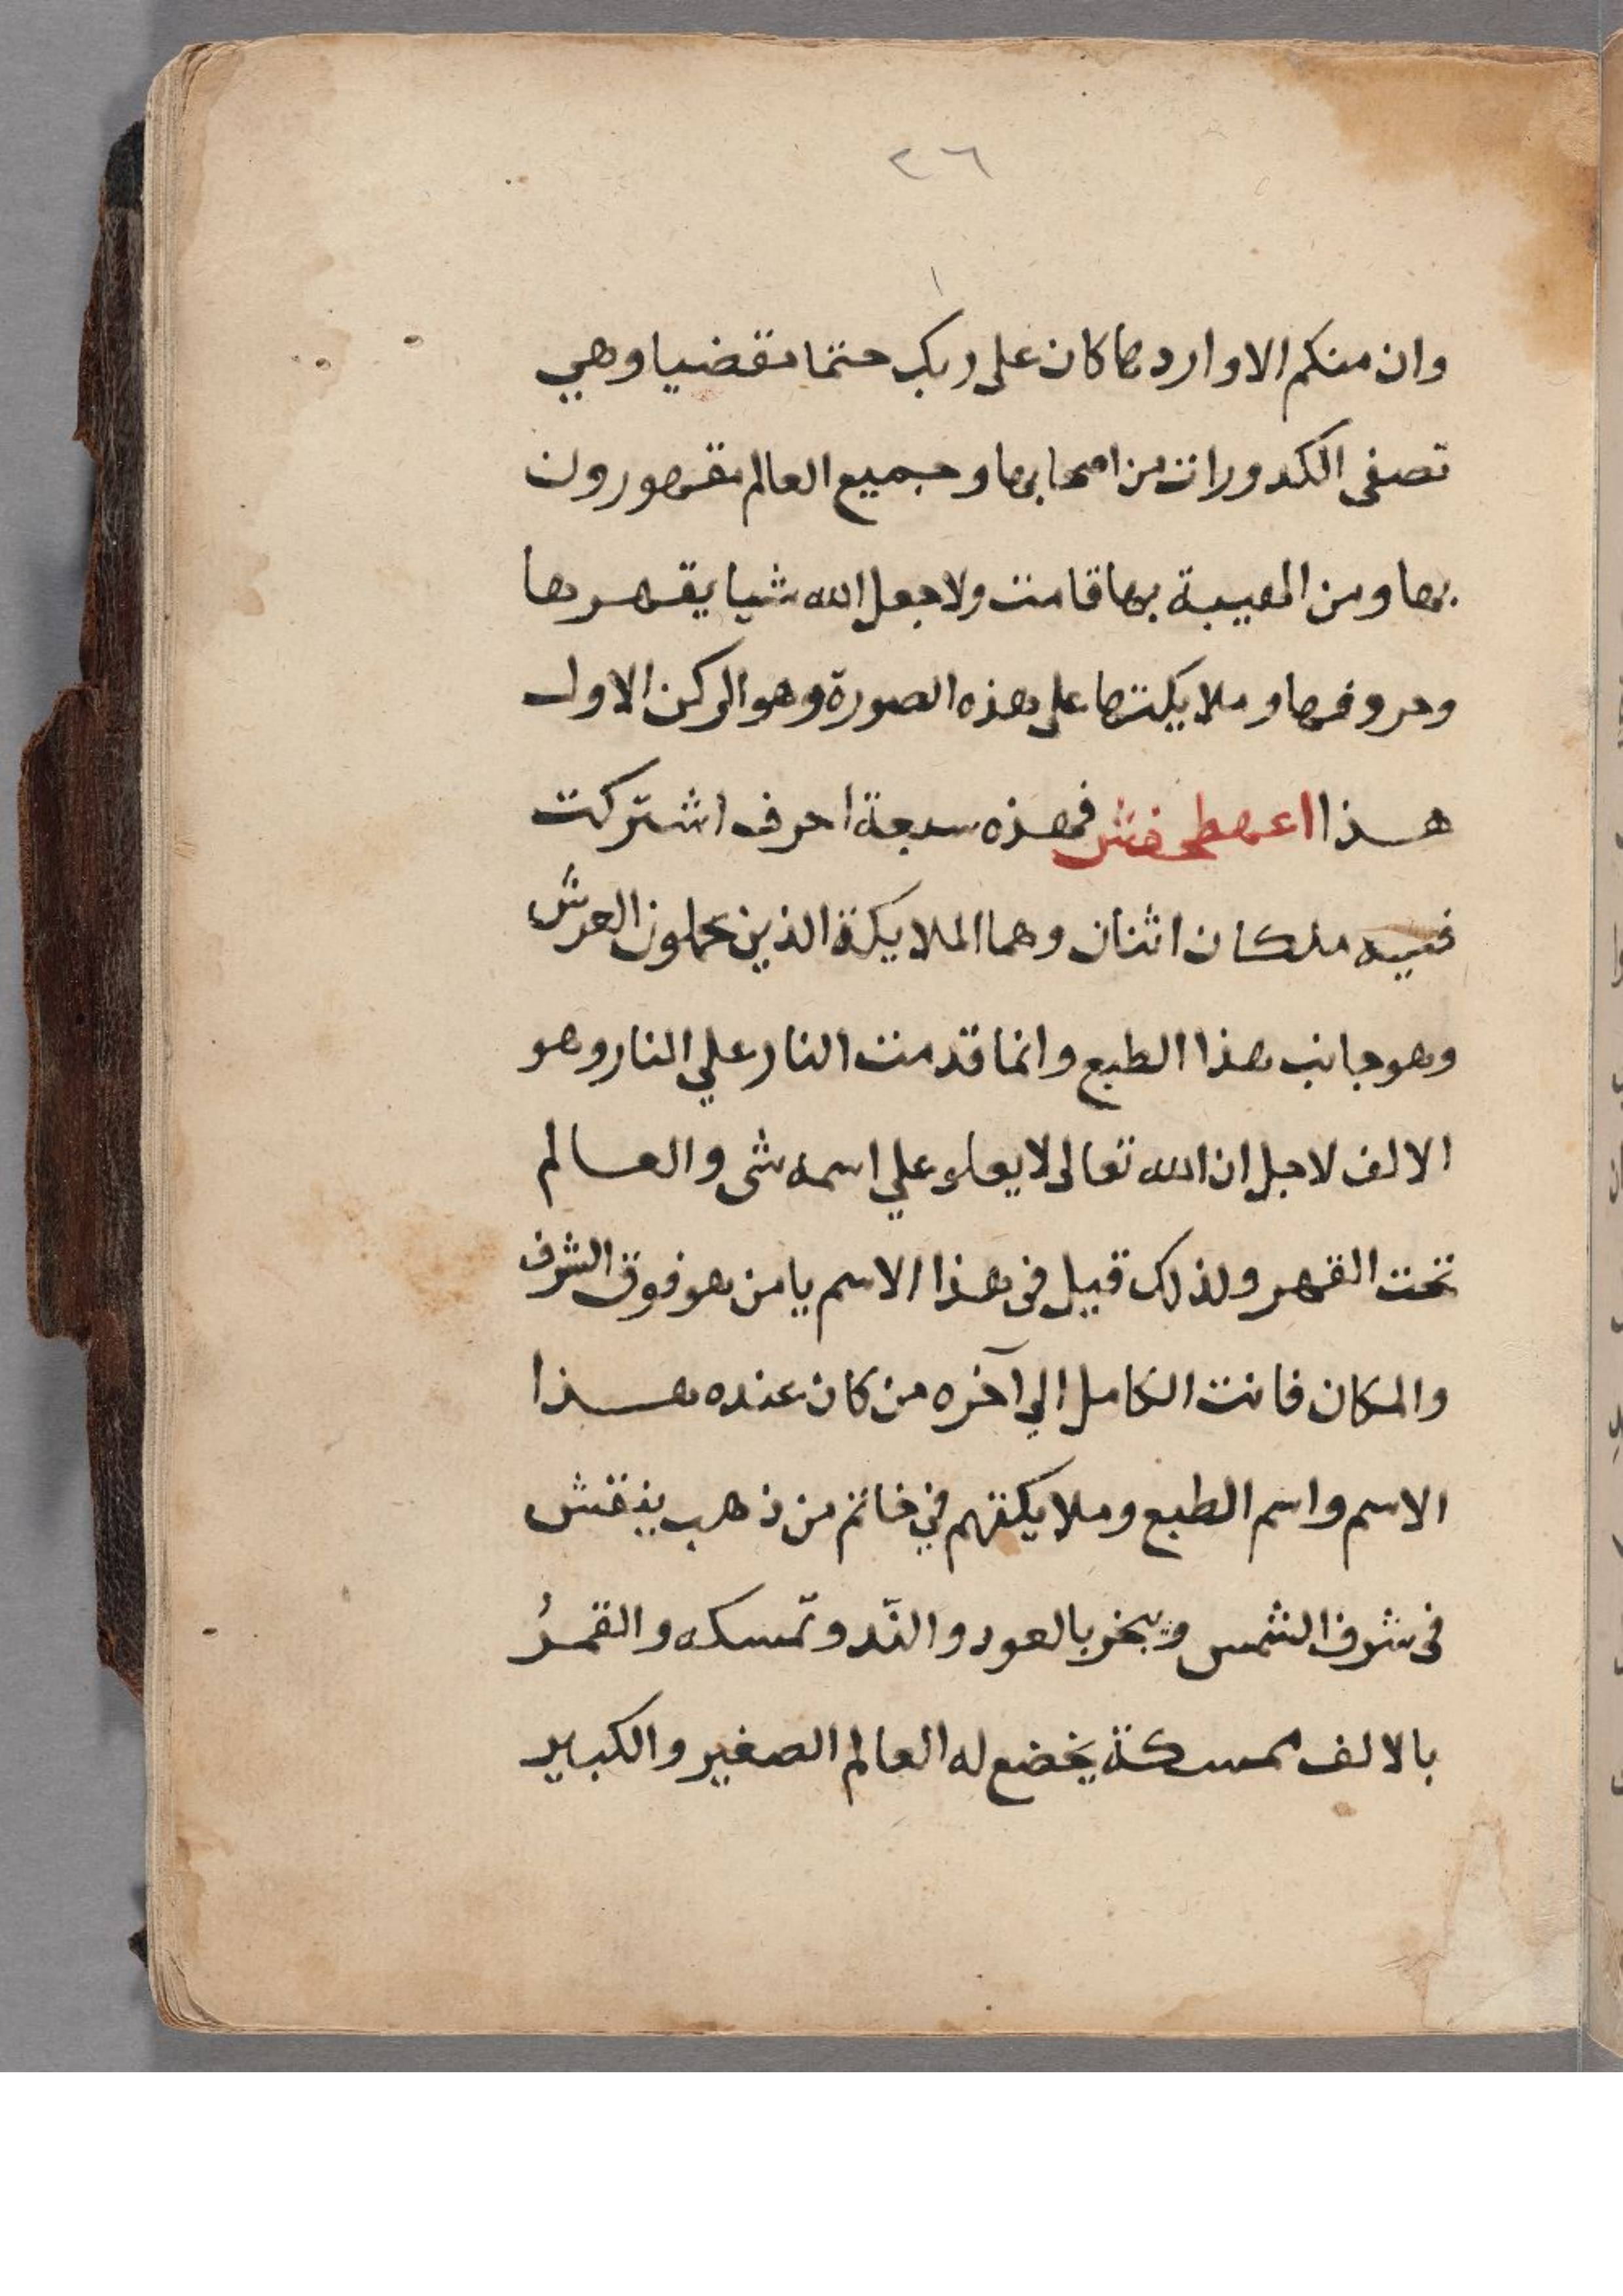 ٢٦
وان منكم الا واردها كان على ربك حتما مقضيا وهي
تصفى الكدورات من اصحابها وجميع العالم مقهورون
بها ومن الهيبة بها قامت ولا جعل الله شيا يقهرها
وحروفها وملايكتها على هذه الصورة وهو الركن الاول
هذا اعهطمفش فهذه سبعة احرف اشتركت
فيه ملكان اثنان وهما الملايكة الذين يحملون العرش
وهو جانب هذا الطبع وانما قدمت النار علي النار وهو
الالف لاجل ان الله تعالى لا يعلو علي اسمه شى والعالم
تحت القهر ولذلك قيل فى هذا الاسم يا من هو فوق الشرف
والمكان فانت الكامل الي آخره من كان عنده هذا
الاسم واسم الطبع وملايكتهم في خاتم من ذهب ينقش
فى شرف الشمس ويبخر بالعود والنّد وتمسكه والقمرُ
بالالف ممسكة يخضع له العالم الصغير والكبير